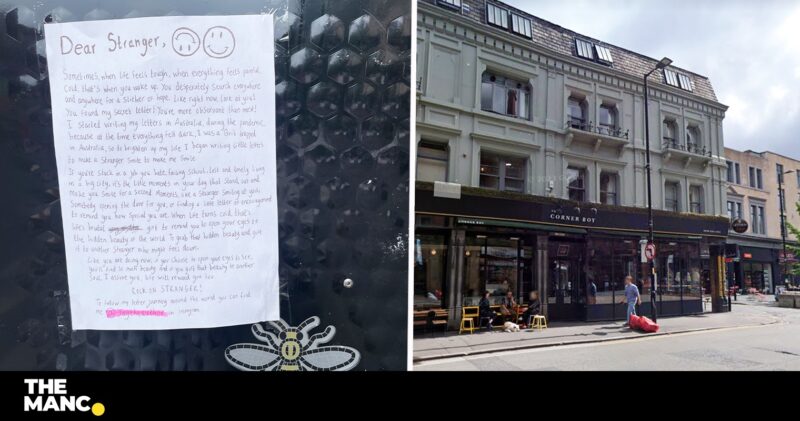 Dear Stranger,
Sometimes, when life feels tough, when everything feels painful,
Cold, that's when you wake up. You desperately search everywhere
and anywhere for a of hope. Like right now, Look at you!
You found my secret letter! You're more observant than most!
I started writing my letters in Australia, during the pandemic,
because at the time everything felt dark, I was a girl
in Australia, so to brighten up my life I began writing little letters
to make a Stranger Smile to make me Smile.
If you're stuck in a job you hate, school, lost and lonely living
in a big city, it's the little moments in your day that stand out and
Make you Smile for a Second. Moments, like a Stranger Smiling at you,
Somebody open the door for you, or finding a little letter of encouragement
to remind you how Special you are. When life turns cold, that's
life's brutal gift to remind you to open your eyes to
the hidden beauty in the world. To grab that hidden beauty and give
it to another Stranger who might feel down.
Like you are doing now, if you choose to open your eyes to see,
you'll find so much beauty and if you gift that beauty to another
Soul, I assure you, life will reward you
ROCK ON STRANGER!
To follow my letter journey around the world you can find
me on Instagram
CORNER BOY
CORNER BOY
THE
MANC